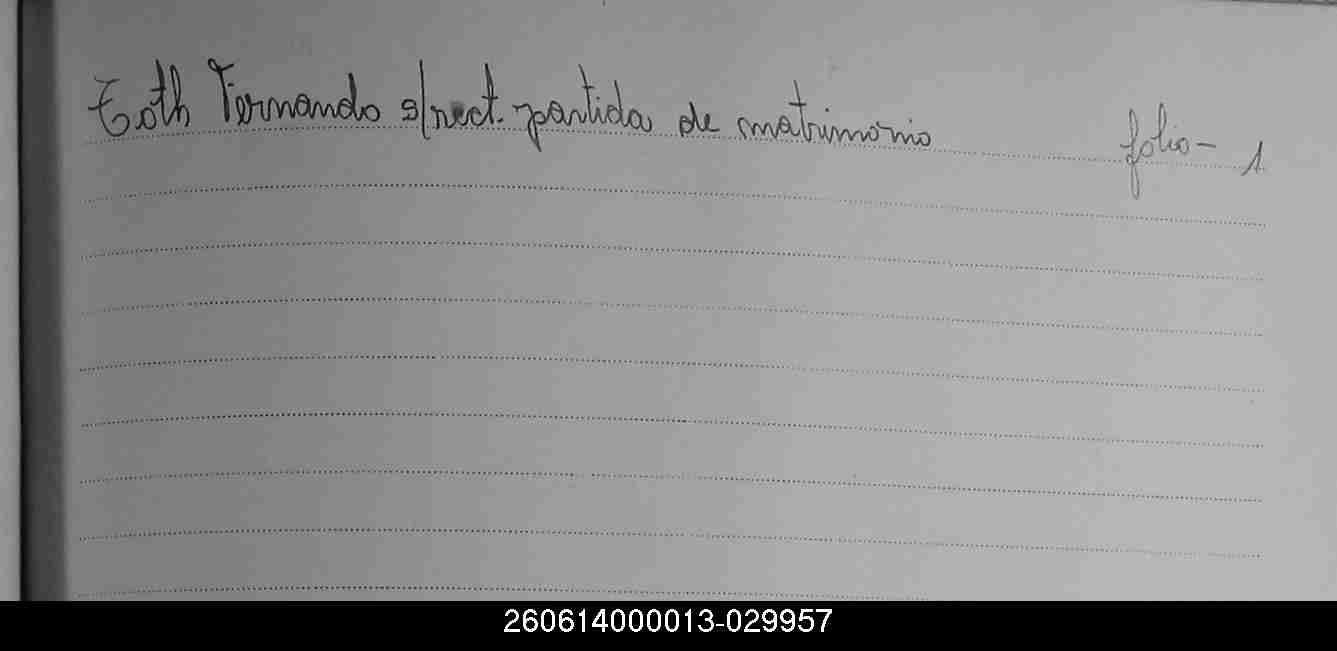 Toth Fernando s/rect. partida de matrimonio folio- 1
260614000013-029957